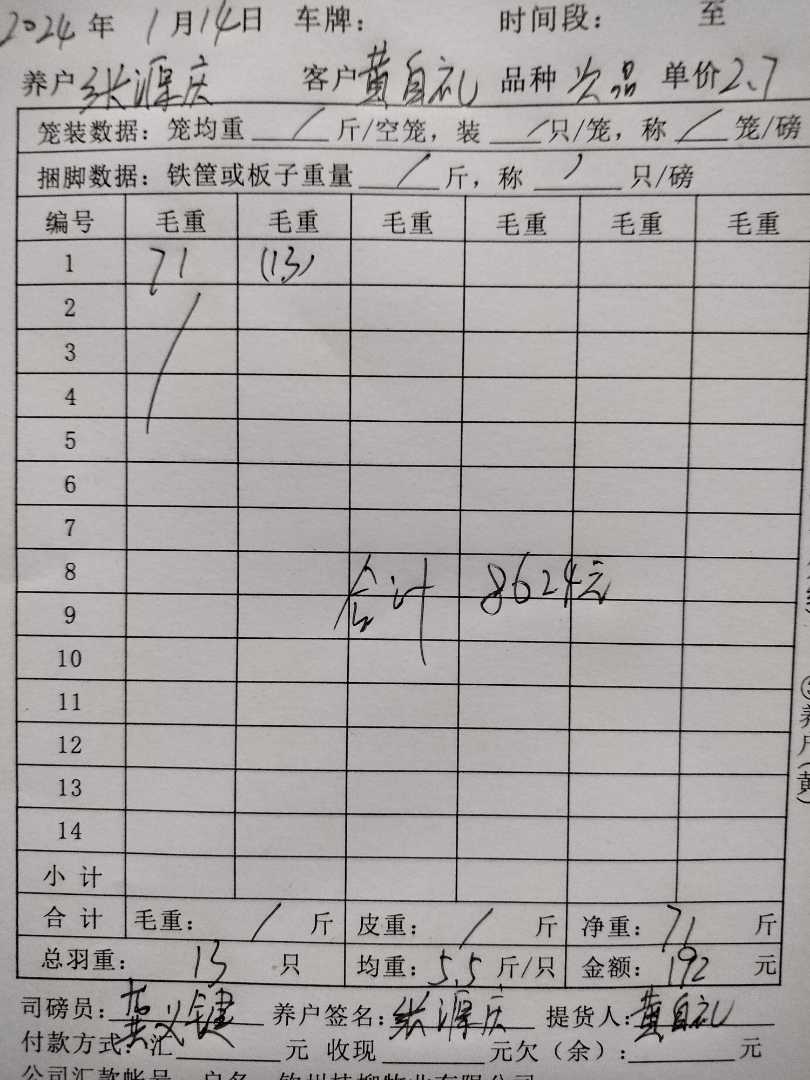 2024年 1月14日 车牌: 时间段: 至
养户 张源庆 客户 黄自礼 品种 次品 单价 2.7
笼装数据: 笼均重 / 斤/空笼, 装 / 只/笼, 称 / 笼/磅
捆脚数据: 铁筐或板子重量 / 斤, 称 / 只/磅
编号 毛重 毛重 毛重 毛重 毛重 毛重
1 71 (13)
2
3
4
5
6
7
8
合计 8624元
9
10
11
12
13
14
小计
合计 毛重: / 斤 皮重: / 斤 净重: 71 斤
总羽重: 13 只 均重: 5.5 斤/只 金额: 192 元
司磅员: 黄义键 养户签名: 张源庆 提货人: 黄自礼
付款方式: 汇 元 收现 元欠(余): 元
公司汇款帐号 户名
③养户(黄)